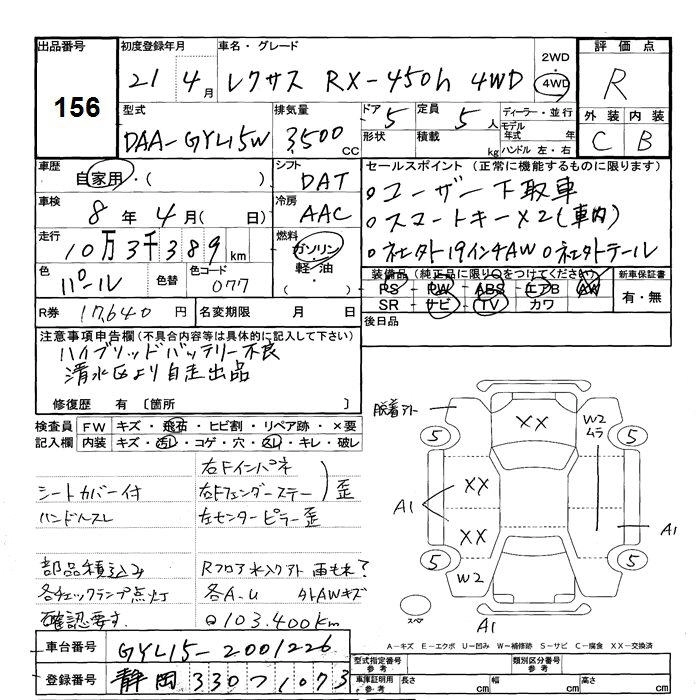 出品番号 156
初度登録年月 21年 4月
車名・グレード レクサス RX-450h 4WD
2WD
4WD
評価点 R
外装 C 内装 B
型式 DAA-GYL15W
排気量 3,500 CC
ドア 5
形状
定員 5人
積載 kg
ディーラー・並行
モデル年式 年式
ハンドル 左・右
車歴 自家用・( )
シフト DAT
車検 8年 4月( 日)
冷房 AAC
走行 10万3千389km
燃料 ガソリン・軽油・( )
色 パール 色替 色コード 077
R券 17,640円 名変期限 月 日
セールスポイント(正常に機能するものに限ります)
○ユーザー下取車
○スマートキー×2(車内)
装備品(純正品に限り○をつけてください)
PS・PW・ABS・エアB・AW
SR・サビ・TV・カワ
新車保証書 有・無
後日品
注意事項申告欄(不具合内容等は具体的に記入して下さい)
ハイブリッドバッテリー不良
清水区より自走出品
修復歴 有 〔箇所 〕
検査員記入欄
FW キズ・飛石・ヒビ割・リペア跡・×要
内装 キズ・汚レ・コゲ・穴・スレ・キレ・破レ
右Fインパネ
シートカバー付 右Fフェンダーステー 歪
ハンドルスレ 左センターピラー歪
部品積込み
各チェックランプ点灯
確認要す
各A.U 外AWキズ
103,400km
車台番号 GYL15-2001226
登録番号 静岡 330つ1073
脱着アト
XX
W2
ムラ
5
5
XX
A1
A1
XX
5
5
W2
スペア
A1
A-キズ E-エクボ U-凹み W-補修跡 S-サビ C-腐食 XX-交換済
型式指定番号 参考
類別区分番号 参考
車庫証明用 参考 長さ cm 幅 cm 高さ cm